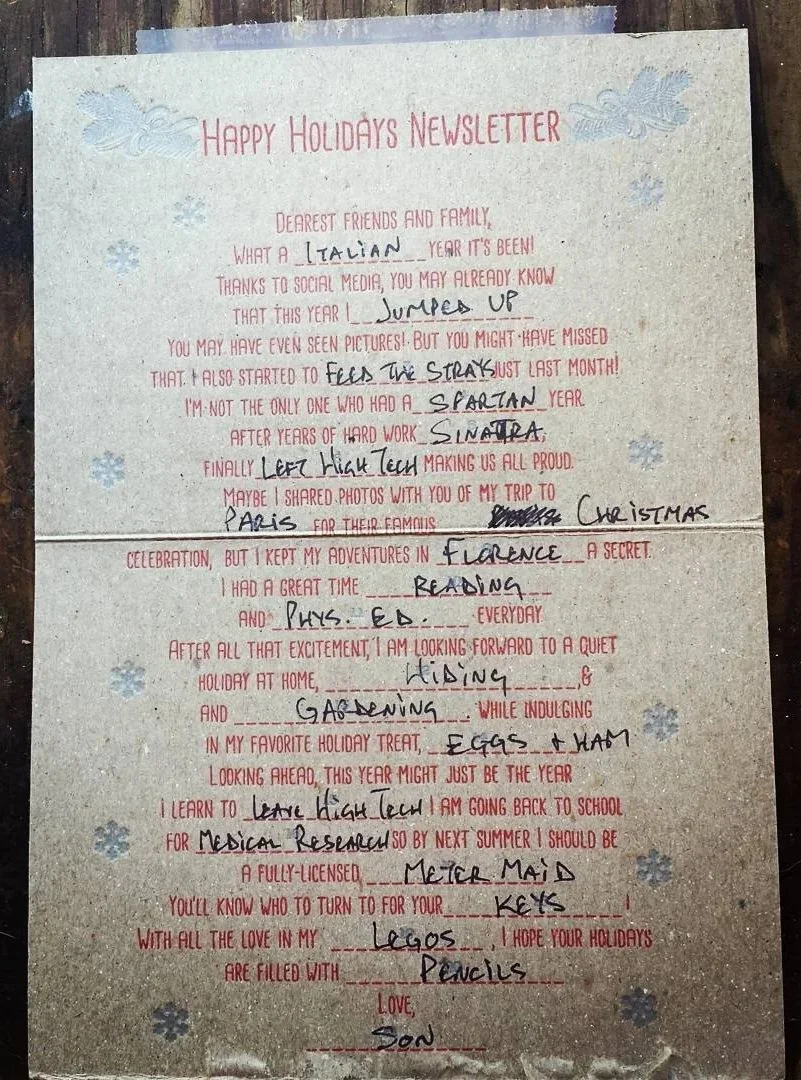 HAPPY HOLIDAYS NEWSLETTER
DEAREST FRIENDS AND FAMILY,
WHAT A ITALIAN YEAR IT'S BEEN!
THANKS TO SOCIAL MEDIA, YOU MAY ALREADY KNOW
THAT THIS YEAR I JUMPED UP
YOU MAY HAVE EVEN SEEN PICTURES! BUT YOU MIGHT HAVE MISSED
THAT I ALSO STARTED TO FEED THE STRAYS JUST LAST MONTH!
I'M NOT THE ONLY ONE WHO HAD A SPARTAN YEAR.
AFTER YEARS OF HARD WORK SINATRA,
FINALLY LEFT HIGH TECH MAKING US ALL PROUD.
MAYBE I SHARED PHOTOS WITH YOU OF MY TRIP TO
PARIS FOR THEIR FAMOUS CHRISTMAS
CELEBRATION, BUT I KEPT MY ADVENTURES IN FLORENCE A SECRET.
I HAD A GREAT TIME READING
AND PHYS. ED. EVERYDAY
AFTER ALL THAT EXCITEMENT, I AM LOOKING FORWARD TO A QUIET
HOLIDAY AT HOME, HIDING ,&
AND GARDENING. WHILE INDULGING
IN MY FAVORITE HOLIDAY TREAT, EGGS + HAM
LOOKING AHEAD, THIS YEAR MIGHT JUST BE THE YEAR
I LEARN TO LEAVE HIGH TECH I AM GOING BACK TO SCHOOL
FOR MEDICAL RESEARCH SO BY NEXT SUMMER I SHOULD BE
A FULLY-LICENSED METER MAID
YOU'LL KNOW WHO TO TURN TO FOR YOUR KEYS!
WITH ALL THE LOVE IN MY LEGOS, I HOPE YOUR HOLIDAYS
ARE FILLED WITH PENCILS
LOVE,
SON